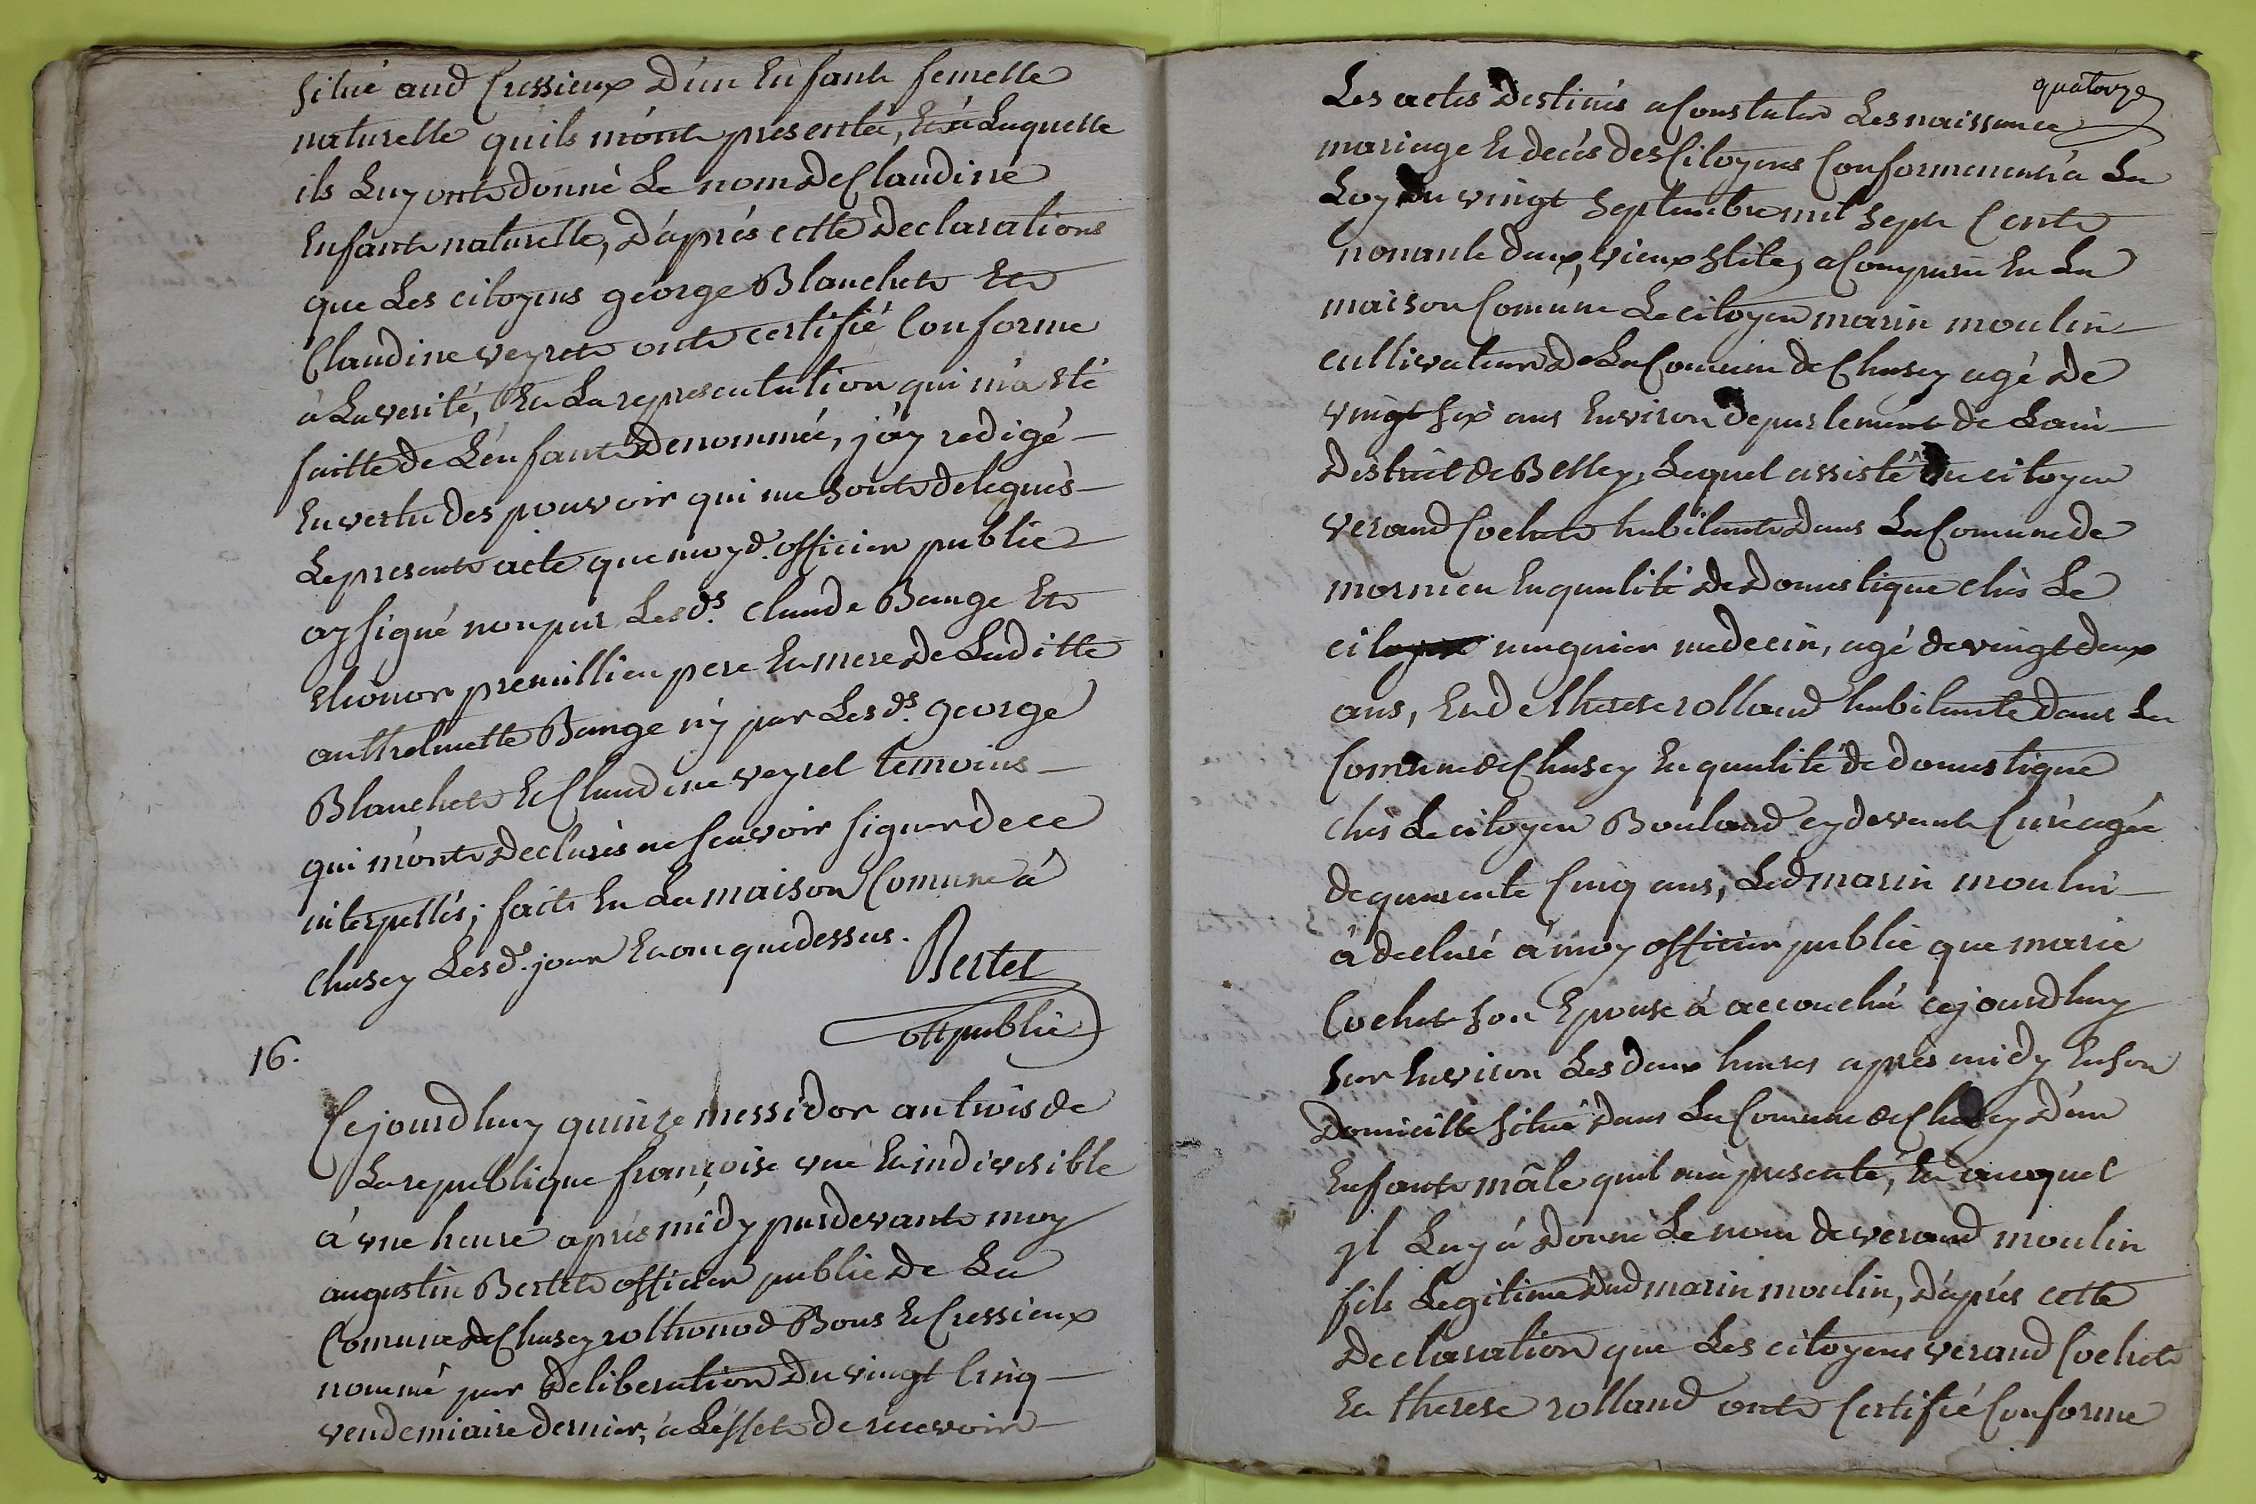 situé aud Cressieux D'un Enfant femelle
naturelle quils m'ont presentée, Et a Laquelle
ils Luy ont donné Le nom De Claudine
Enfant naturelle, D'après cette Declarations
que Les citoyens george Blanchet Et
Claudine veyret ont certifié Conforme
à La verité, Et La representation qui m'a été
faitte de L'enfant Denommée, j'ay redigé
En vertu des pouvoir qui me sont delegués
Le present acte que moy d. officier public
ay signé non pas Lesds. Claude Bange Et
Elionor premillieu pere Et mere De Laditte
anthelmette Bange n'y par Les ds. george
Blanchet Et Claudine veyret temoins
qui m'ont Declarés ne scavoir signer de ce
interpellés; fait En La maison Comune à
Chasey Lesd. jour Et an que dessus.
Bertet
off public
16.
Cejourdhuy quinze messidor an trois de
La republique françoise une Et indivisible
à une heure après midy pardevant moy
augustin Bertet officier public de La
Comune de Chasey rothonod Bons Et Cressieux
nommé par Deliberation Du vingt Cinq
vendemiaire dernier, à L'effet de recevoir
quatorze
Les actes Destinés a Constater Les naissance
mariage Et decés des Citoyens Conformement à La
Loy Du vingt Septembre mil Sept Cent
nonante deux, vieux stile, a Comparu En La
maison Comune Le citoyen marin moulin
cultivateur De La Comune de Chasey agé De
vingt six ans Environ Departement de Lain
District de Belley, Lequel assisté Du citoyen
verand Cochet habitant Dans La Comune de
mornieu En qualité De Domestique chés Le
citoyen mugnier medecin, agé de vingt deux
ans, Et de therese rolland habitante Dans La
Comune de Chasey En qualité de domestique
chés Le citoyen Bouland cy devant Curé agée
de quarente Cinq ans, Led marin moulin
à declaré à moy officier public que marie
Cochet son Epouse à accouché cejourdhuy
sur Environ Les deux heures après midy En son
Domicille situé Dans La Comune de Chasey D'un
Enfant mâle quil m'a presenté, Et auquel
jl Luy à Donné Le nom de verand moulin
fils Legitime Dud marin moulin, D'après cette
Declaration que Les citoyens verand Cochet
Et therese rolland ont Certifié Conforme